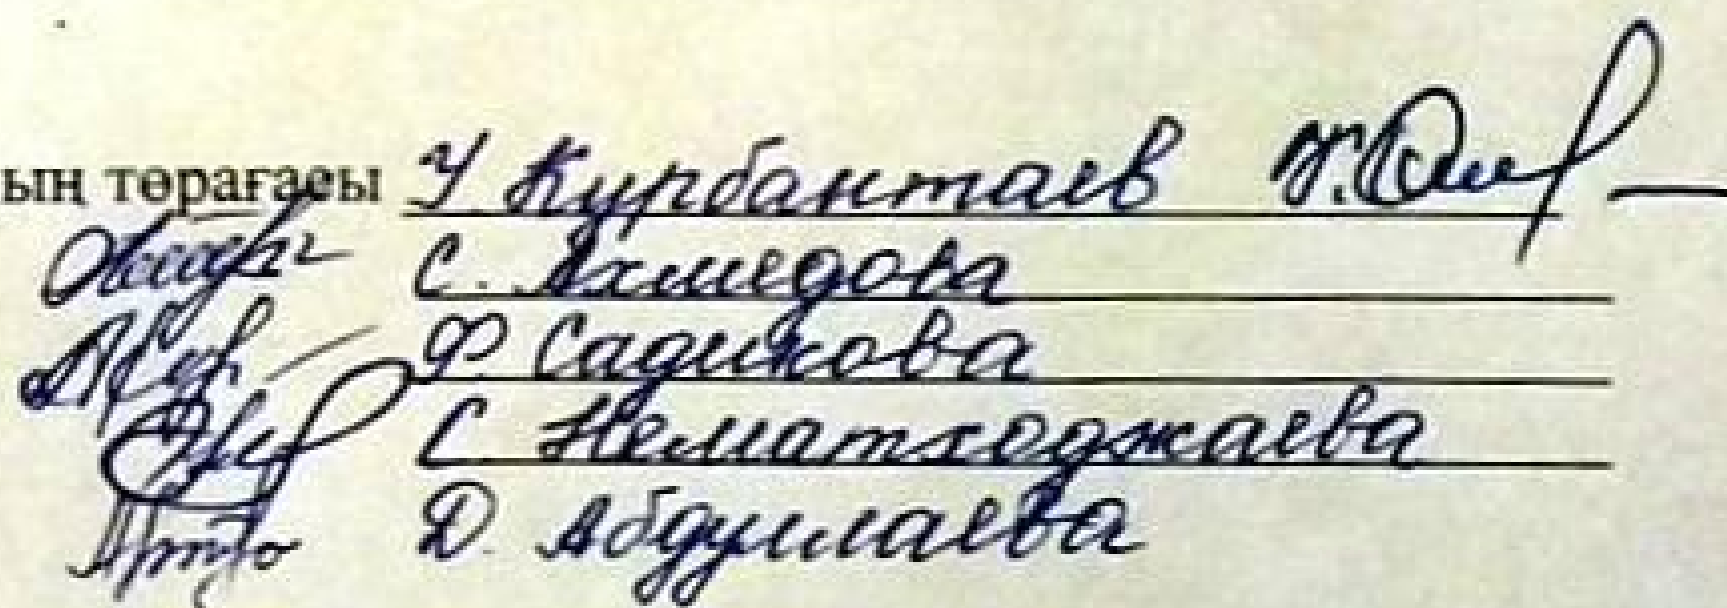 ың төрағасы У Курбантаев
С. Ахмедова
Ф. Садикова
С. Нематходжаева
Д. Абдуллаева